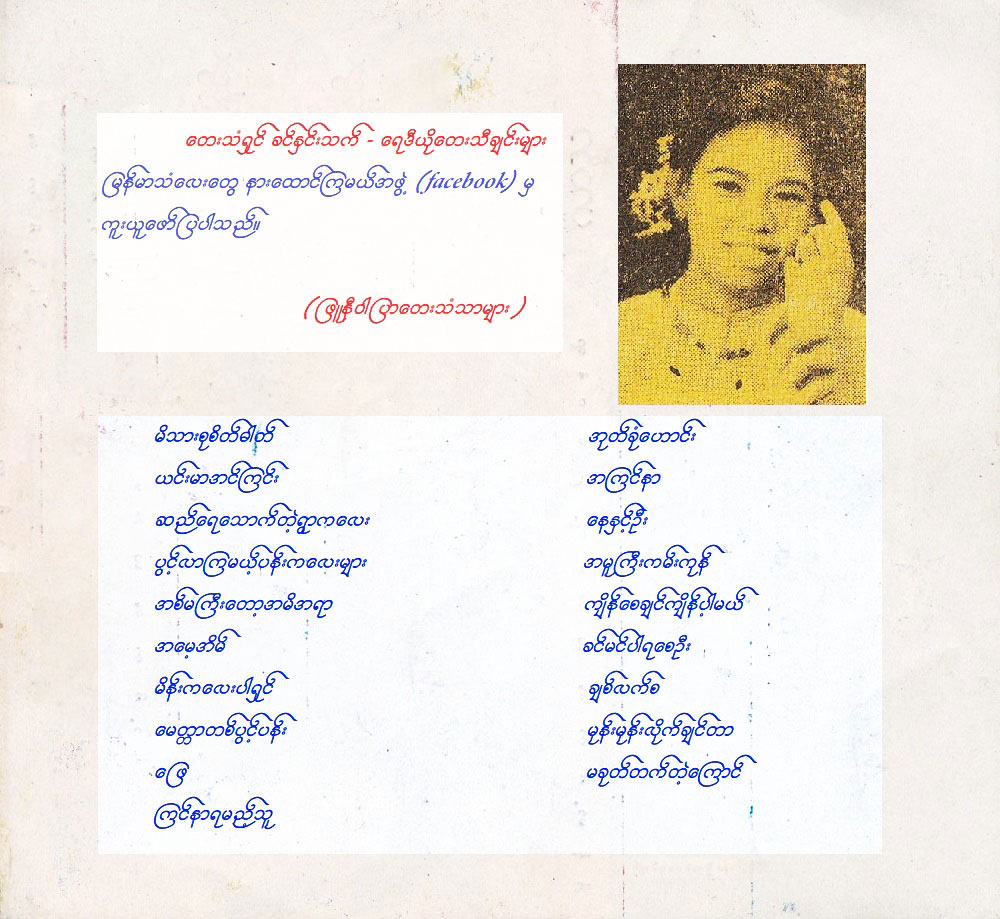 တေးသံရှင် ခင်နှင်းသက် - ရေဒီယိုတေးသီချင်းများ
မြန်မာသံလေးတွေ နားထောင်ကြမယ်အဖွဲ့ (facebook) မှ
ကူးယူဖော်ပြပါသည်။
(ဖြူနီဝါပြာတေးသံသာများ)
မိသားစုစိတ်ဓါတ်
ယင်းမာအင်ကြင်း
ဆည်ရေသောက်တဲ့ရွာကလေး
ပွင့်လာကြမယ့်ပန်းကလေးများ
အစ်မကြီးတော့အမိအရာ
အမေ့အိမ်
မိန်းကလေးပါရှင်
မေတ္တာတစ်ပွင့်ပန်း
ဖြေ
ကြင်နာရမည့်သူ
အုတ်ခုံဟောင်း
အကြင်နာ
နေနှင့်ဦး
အမူကြီးကမ်းကုန်
ကျိန်စေချင်ကျိန်ပါ့မယ်
ခင်မင်ပါရစေဦး
ချစ်လက်စ
မုန်းမုန်းလိုက်ချင်တာ
မခုတ်တက်တဲ့ကြောင်